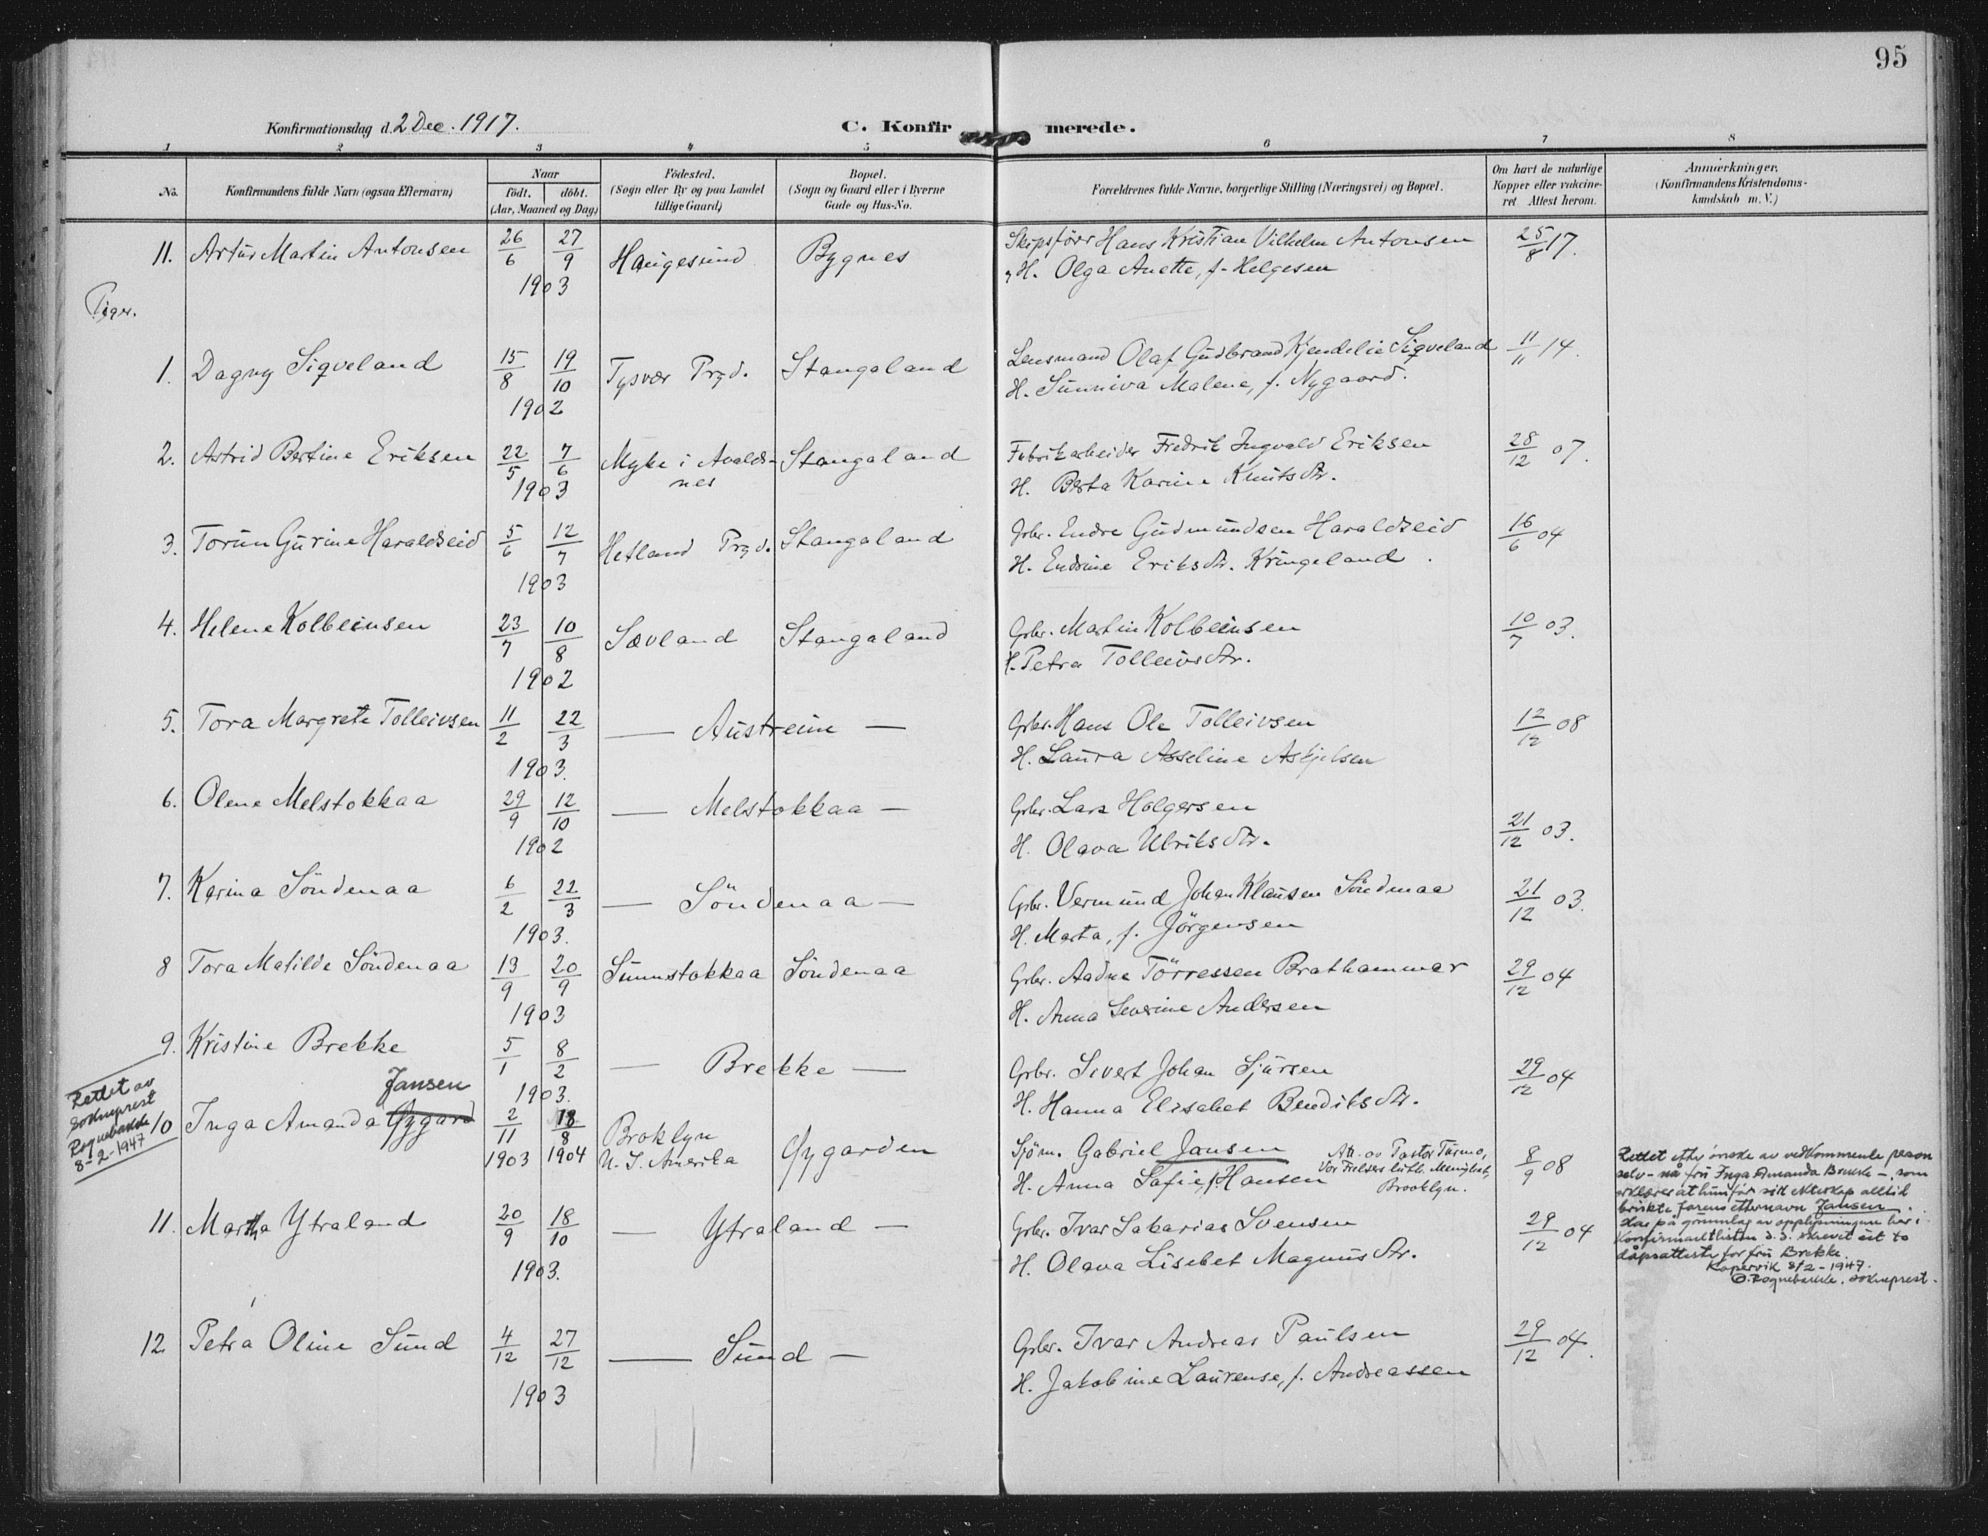 95
Konfirmationsdag d. 2 Dec. 1917.
C. Konfirmerede.
1 2 3 4 5 6 7 8
No.
Konfirmandens fulde Navn (ogsaa Efternavn)
Naar
födt. döbt.
(Aar, Maaned og Dag)
Födested.
(Sogn eller By og paa Landet
tillige Gaard)
Bopæl.
(Sogn og Gaard eller i Byerne
Gade og Hus-No.
Forældrenes fulde Navne, borgerlige Stilling (Næringsvei) og Bopæl.
Om havt de naturlige
Kopper eller vakcine-
ret Attest herom.
Anmærkninger.
(Konfirmandens Kristendoms-
kundskab m. V.)
11. Artur Martin Antonsen 26/6 27/9 Haugesund Bygnes Skipsförer Hans Kristian Vilhelm Antonsen 25/8 17.
1903 H. Olga Anette, f. Helgesen
Piger.
1. Dagny Siqveland 15/8 19/10 Tysvær Prgd. Stangaland Lensmand Olaf Gudbrand Kjendelie Siqveland 11/11 14.
1902 H. Sunniva Malene, f. Nygaard.
2. Astrid Bertine Eriksen 22/5 7/6 Myke i Avalds- Stangaland Fabrikarbeider Fredrik Ingvald Eriksen 28/12 07.
1903 nes H. Berta Karine Knutsdtr.
3. Torun Gurine Haraldseid 5/6 12/7 Hetland Prgd. Stangaland Grbr. Endre Gudmundsen Haraldseid 16/6 04
1903 H. Endrine Eriksdtr. Kringeland.
4. Helene Kolbeinsen 23/7 10/8 Sævland Stangaland Grbr. Martin Kolbeinsen 10/7 03.
1902 H. Petra Tolleivsdtr.
5. Tora Margrete Tolleivsen 11/2 22/3 — Austreim — Grbr. Hans Ole Tolleivsen 12/12 08
1903. H. Laura Asseline Askjelsen
6. Olene Melstokkaa 29/9 12/10 — Melstokkaa — Grbr. Lars Holgersen 21/12 03.
1902 H. Olava Ulriksdtr.
7. Karina Söndenaa 6/2 22/3 — Söndenaa — Grbr. Vermund Johan Klausen Söndenaa 21/12 03.
1903. H. Marta, f. Jörgensen
8 Tora Matilde Söndenaa 13/9 20/9 Sunnstokkaa Söndenaa Grbr. Aadne Törressen Brathammer 29/12 04
1903 H. Anna Severine Andersen
9. Kristine Brekke 5/1 8/2 — Brekke — Grbr. Sivert Johan Sjursen 29/12 04
1903. H. Hanna Elisabet Bendiksdtr.
Rettet av
sokneprest
Rognebakke
8-2-1947
Jansen
10 Inga Amanda Öygard 2/11 18/8 Broklyn Öygarden Sjöm. Gabriel Jansen Att. av Pastor Turmo, 8/9 08
1903 1904 N. S. Amerika H. Anna Sofie, f. Hansen Vor Frelsers luth. Menighet,
Brooklyn.
Rettet etter önske av vedkommende person
selv – nå fru Inga Amanda Brekke –, som
erklærer at hun för sitt ekteskap alltid
brukte farens etternavn Jansen.
Har på grunnlag av opplysningene her i
konfirmantlisten d.d. skrevet ut to
dåpsattester for fru Brekke.
Kopervik 8/2-1947.
O. Rognebakke. sokneprest.
11. Martha Ytraland 20/9 18/10 — Ytraland — Grbr. Ivar Sakarias Svensen 29/12 04
1903. H. Olava Lisebet Magnusdtr.
12. Petra Oline Sund 4/12 27/12 — Sund — Grbr. Ivar Andreas Paulsen 29/12 04.
1903 H. Jakobine Laurense, f. Andreassen